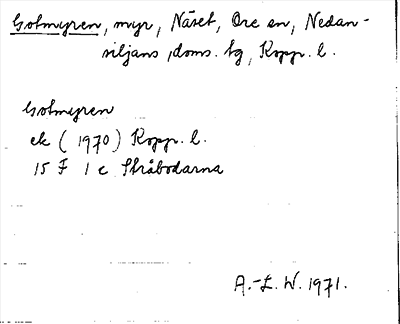 Gotmyren, myr, Näset, Ore sn, Nedan-
siljans, doms. tg, Kopp. l.
Gotmyren
ek (1970) Kopp. l.
15 F 1 c Skråbodarna
A.-L. W. 1971.